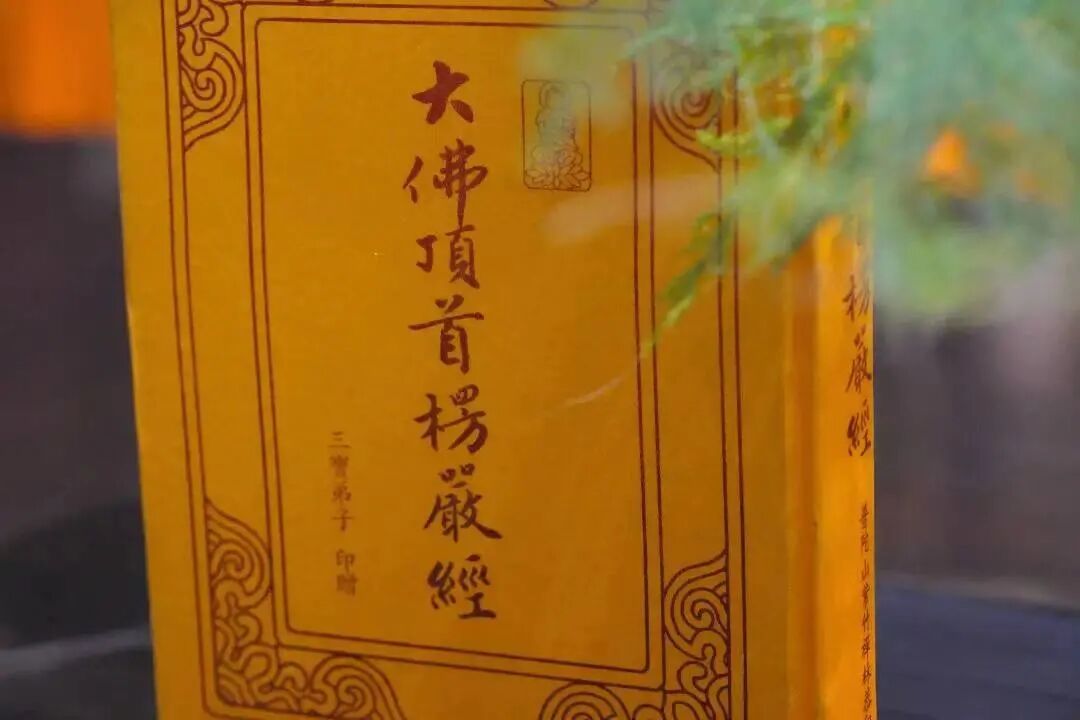 大佛頂首楞嚴經
三寶弟子 印贈
楞嚴經
普陀山紫竹禪林